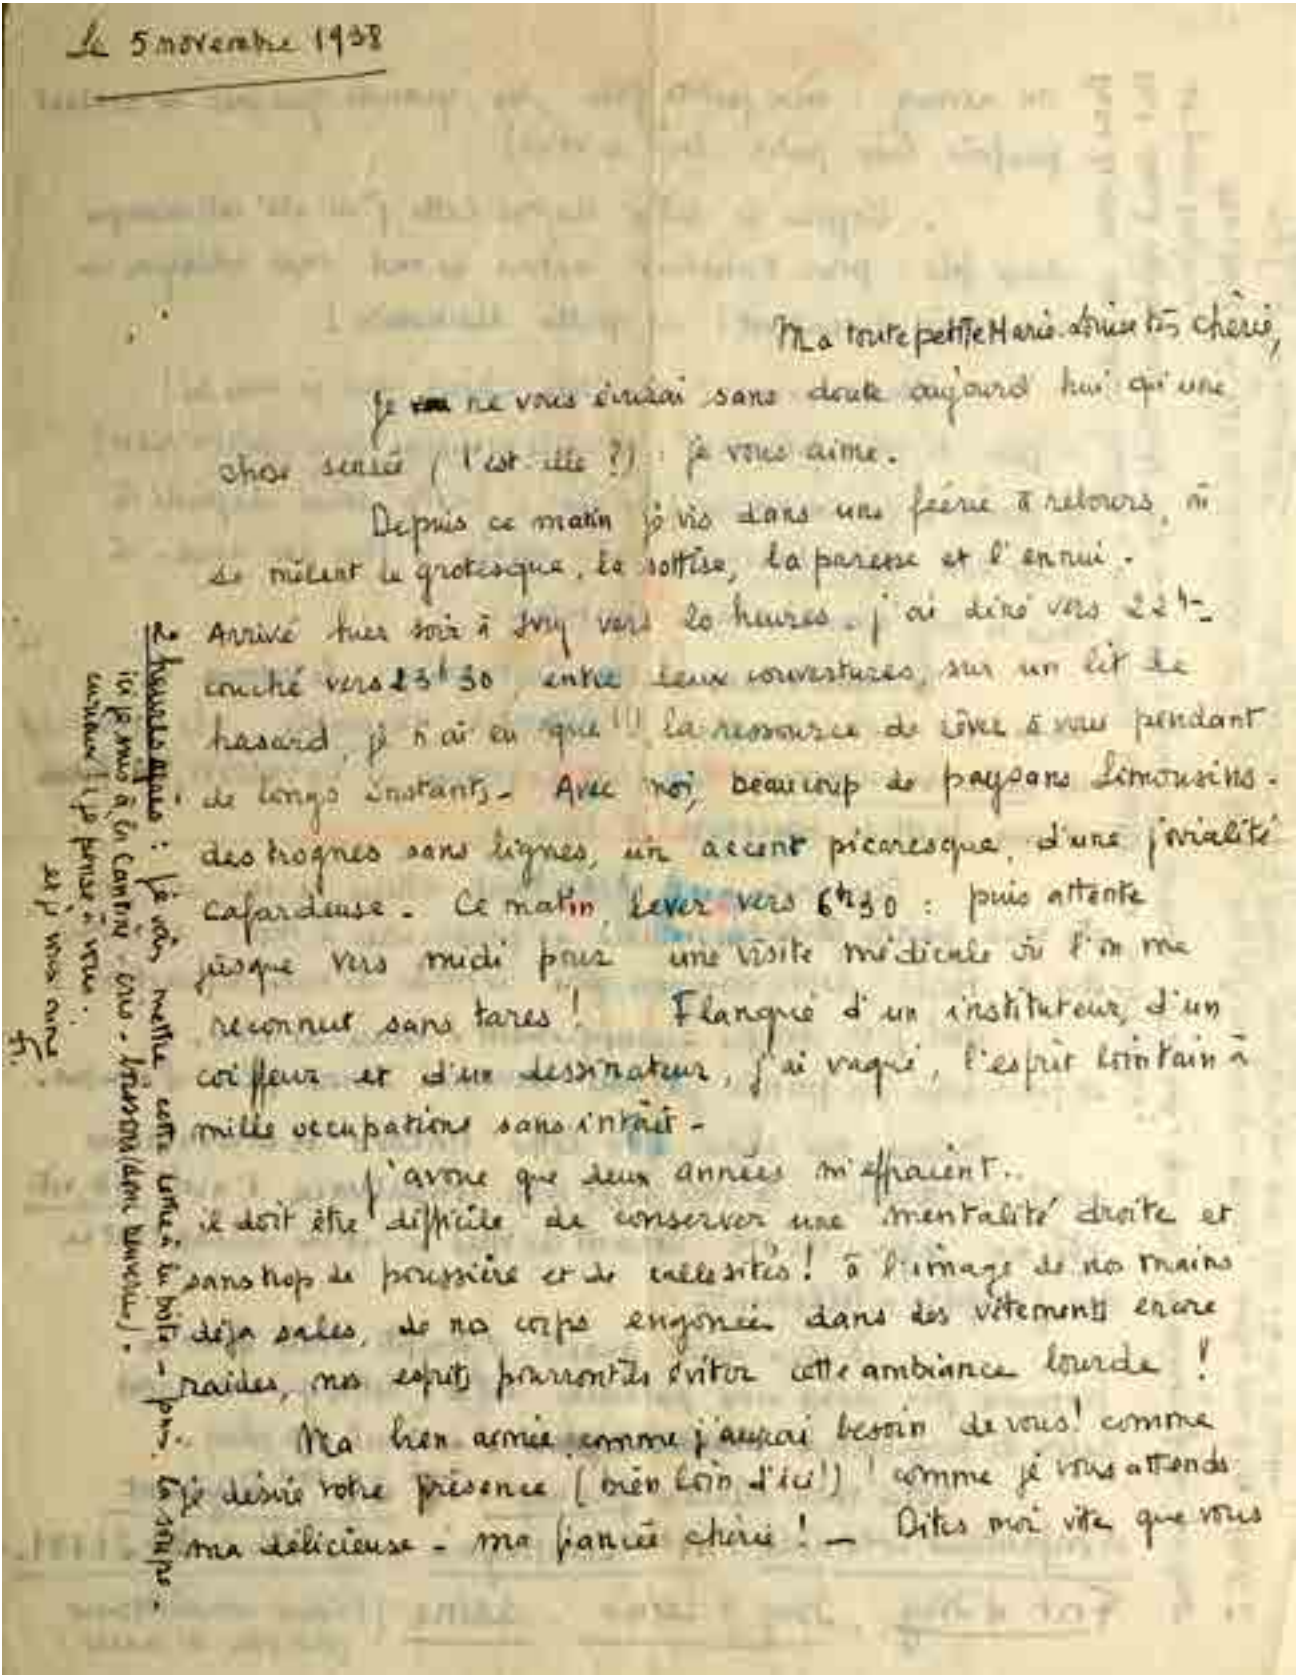 Le 5 novembre 1938
Ma toute petite Marie-Louise très chérie,
Je ne vous écrirai sans doute aujourd'hui qu'une
chose sensée (l'est-elle ?) : je vous aime.
Depuis ce matin je vis dans une féérie à rebours, où
se mêlent le grotesque, la sottise, la paresse et l'ennui.
Arrivé hier soir à Ivry vers 20 heures. j'ai dîné vers 22h-
couché vers 23h30, entre deux couvertures, sur un lit de
hasard, je n'ai eu que (!) la ressource de rêver à vous pendant
de longs instants. Avec moi, beaucoup de paysans Limousins.
des trognes sans lignes, un accent picaresque, d'une jovialité
cafardeuse. Ce matin, lever vers 6h30 : puis attente
jusque vers midi pour une visite médicale où l'on me
reconnut sans tares ! Flanqué d'un instituteur, d'un
coiffeur et d'un dessinateur, j'ai vaqué, l'esprit lointain à
mille occupations sans intérêt -
J'avoue que deux années m'effraient..
il doit être difficile de conserver une mentalité droite et
sans trop de poussière et de callosités ! à l'image de nos mains
déja sales, de nos corps engoncés dans des vêtements encore
raides, nos esprits pourront-ils éviter cette ambiance lourde !
Ma bien aimée, comme j'aurai besoin de vous ! comme
je désire votre présence (bien loin d'ici !) ! comme je vous attends
ma délicieuse - ma fiancée chérie ! — Dites moi vite que vous
heures après : je vais mettre cette lettre à la boîte - puis, la soupe.
ici je suis à la Cantine - cris - boissons (dont renversées).
curieux ! je pense à vous.
et je vous aime